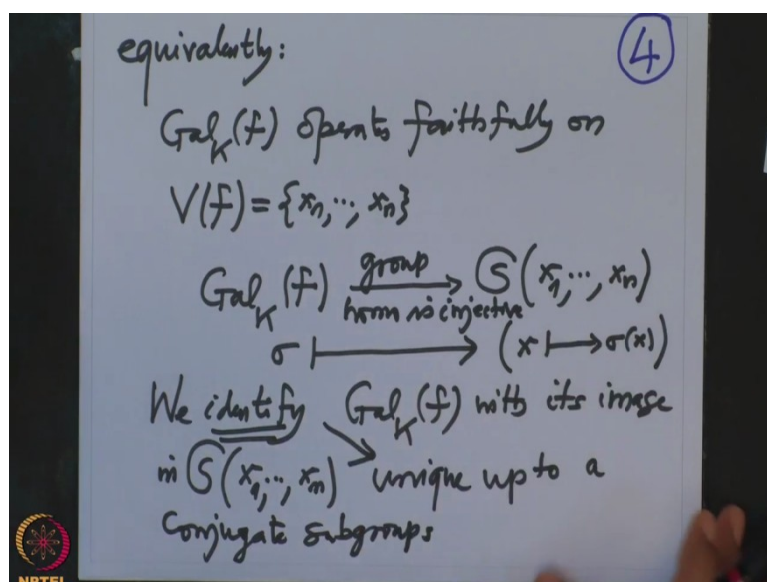 equivalently:
4
Gal_K(f) operates faithfully on
V(f) = {x_1, ..., x_n}
Gal_K(f) group 𝔖(x_1, ..., x_n)
hom is injective
σ ⟼ (x ⟼ σ(x))
We identify Gal_K(f) with its image
in 𝔖(x_1, ..., x_n) unique up to a
Conjugate subgroups
NPTEL